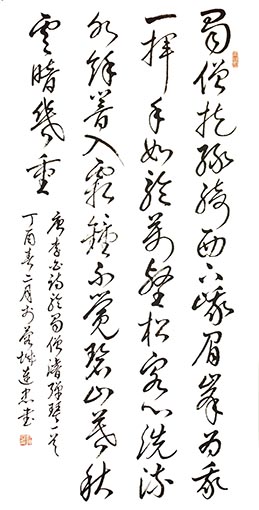 蜀僧抱綠綺西下峨眉峯為我
一揮手如聽萬壑松客心洗流
水餘響入霜鐘不覺碧山暮秋
雲暗幾重
唐李白詩聽蜀僧濬彈琴一首
丁酉春二月於城書